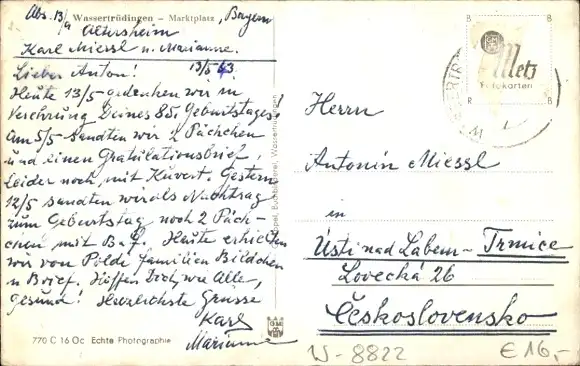 Abs. 13/a Wassertrüdingen – Marktplatz, Bayern
Altersheim
Karl Miessl u. Marianne.
13/5 63.
Lieber Anton!
Heute 13/5 gedenken wir in
Verehrung Deines 85. Geburtstages!
Am 5/5 sandten wir 2 Päckchen
und einen Gratulationsbrief,
leider noch mit Kuvert. Gestern
12/5 sandten wir als Nachtrag
zum Geburtstag noch 2 Päck-
chen mit Heute erhielten
wir von Poldi Familien Bildchen
u Brief. Hoffen Dich, wie Alle,
gesund! Herzlichste Grüsse
Karl
Marianne
770 C 16 Oc Echte Photographie
Buchbinderei, Wassertrüdingen
B B
Metz
Fotokarten
R B
Herrn
Antonín Miessl
in
Ústí nad Labem – Trmice
Lovecká 26
Československo
W - 8822
€ 16,-